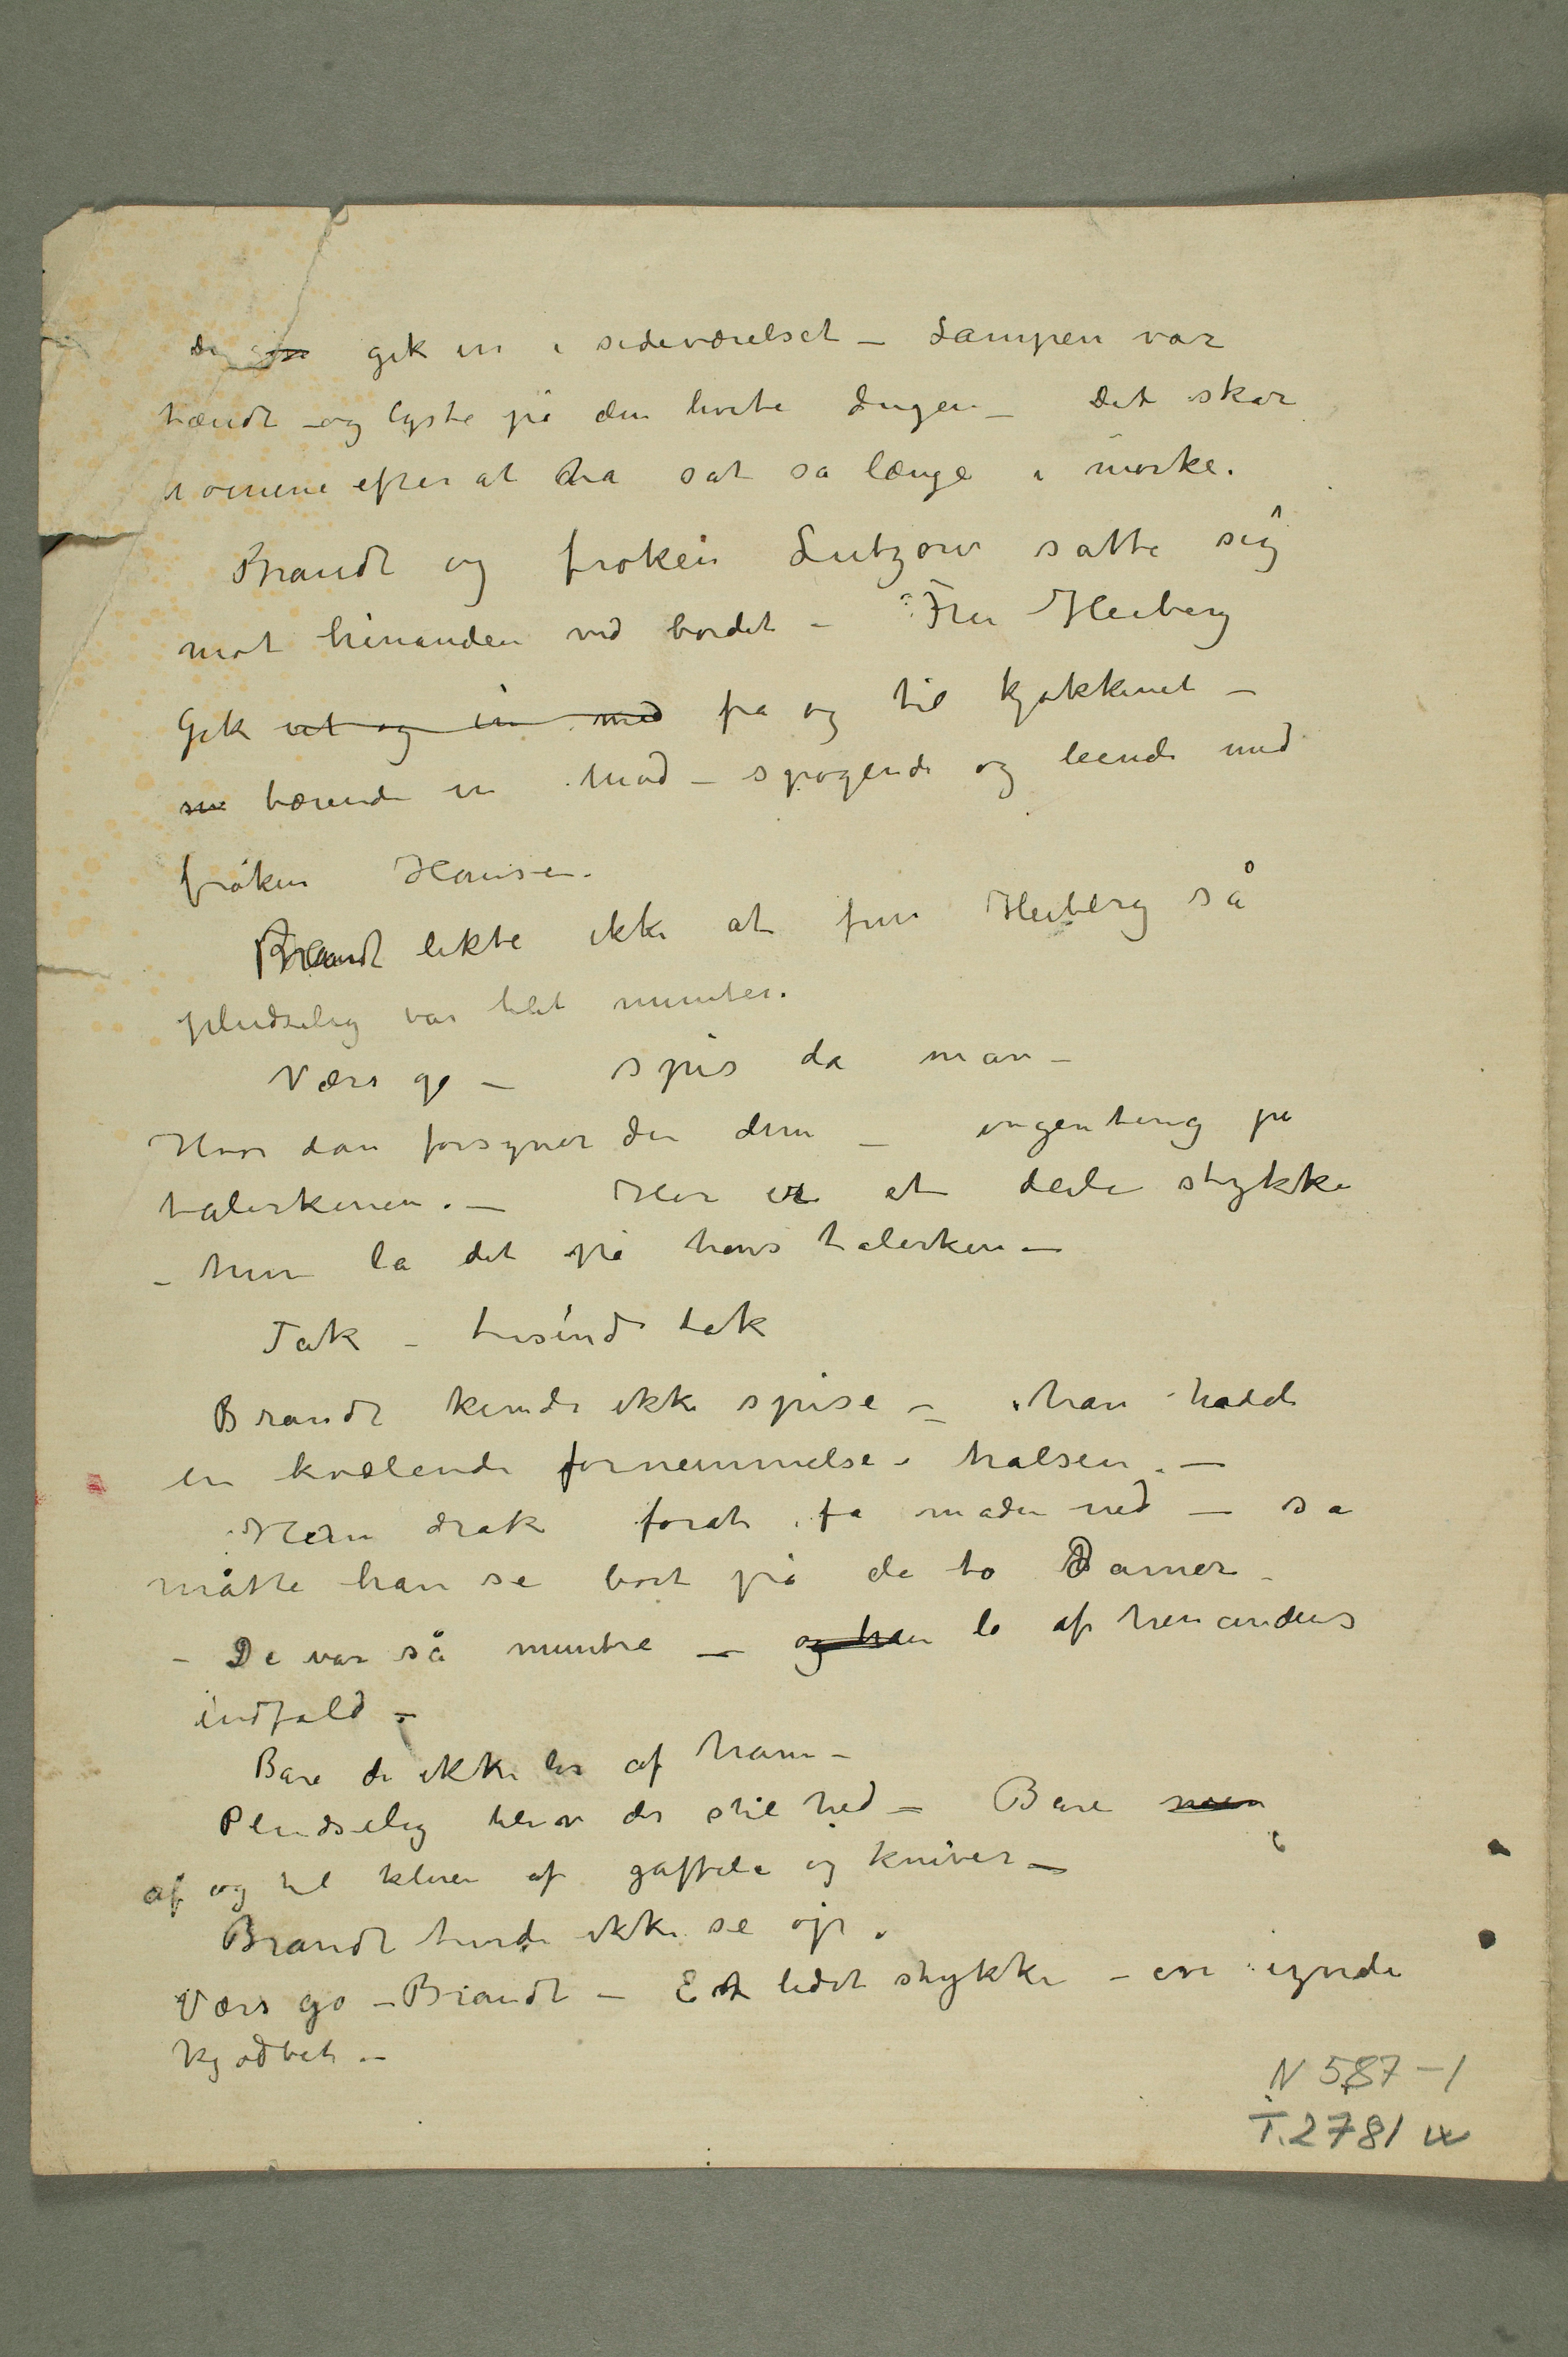 De gik in i sideværelset – Lampen var
tændt – og lyste på den hvite dugen – Det skar
i øinene efter at ha sat så længe i mørke.
Brandt og frøken Lutzow satte sig
mot hinanden ved bordet – Fru Heiberg
Gik ut og in med fra og til kjøkkenet –
bærende in mad – spøgende og leende med
frøken Hansen.
Brandt likte ikke at fru Heiberg så
pludselig var blet munter.
Værs go – spis da man –
Hvor dan forsyner De dem – ingenting på
talerkenen. – Her er et deili stykke
– hun la det på hans talerken –
Tak – tusind tak
Brandt kunde ikke spise – han hadde
en kvælende fornemmelse i halsen. –
Han drak forat få maden ned – så
måtte han se bort på de to Damer –
– De var så muntre – og han lo af hinandens
indfald –
Bare de ikke lo af ham –
Pludselig blev der stilhed – Bare
af og til kliren af gaffele og kniver –
Brandt turde ikke se op.
Værs go – Brandt – Et lidet stykke – en ynde
kjødbet. –
N 587–1
T.2781